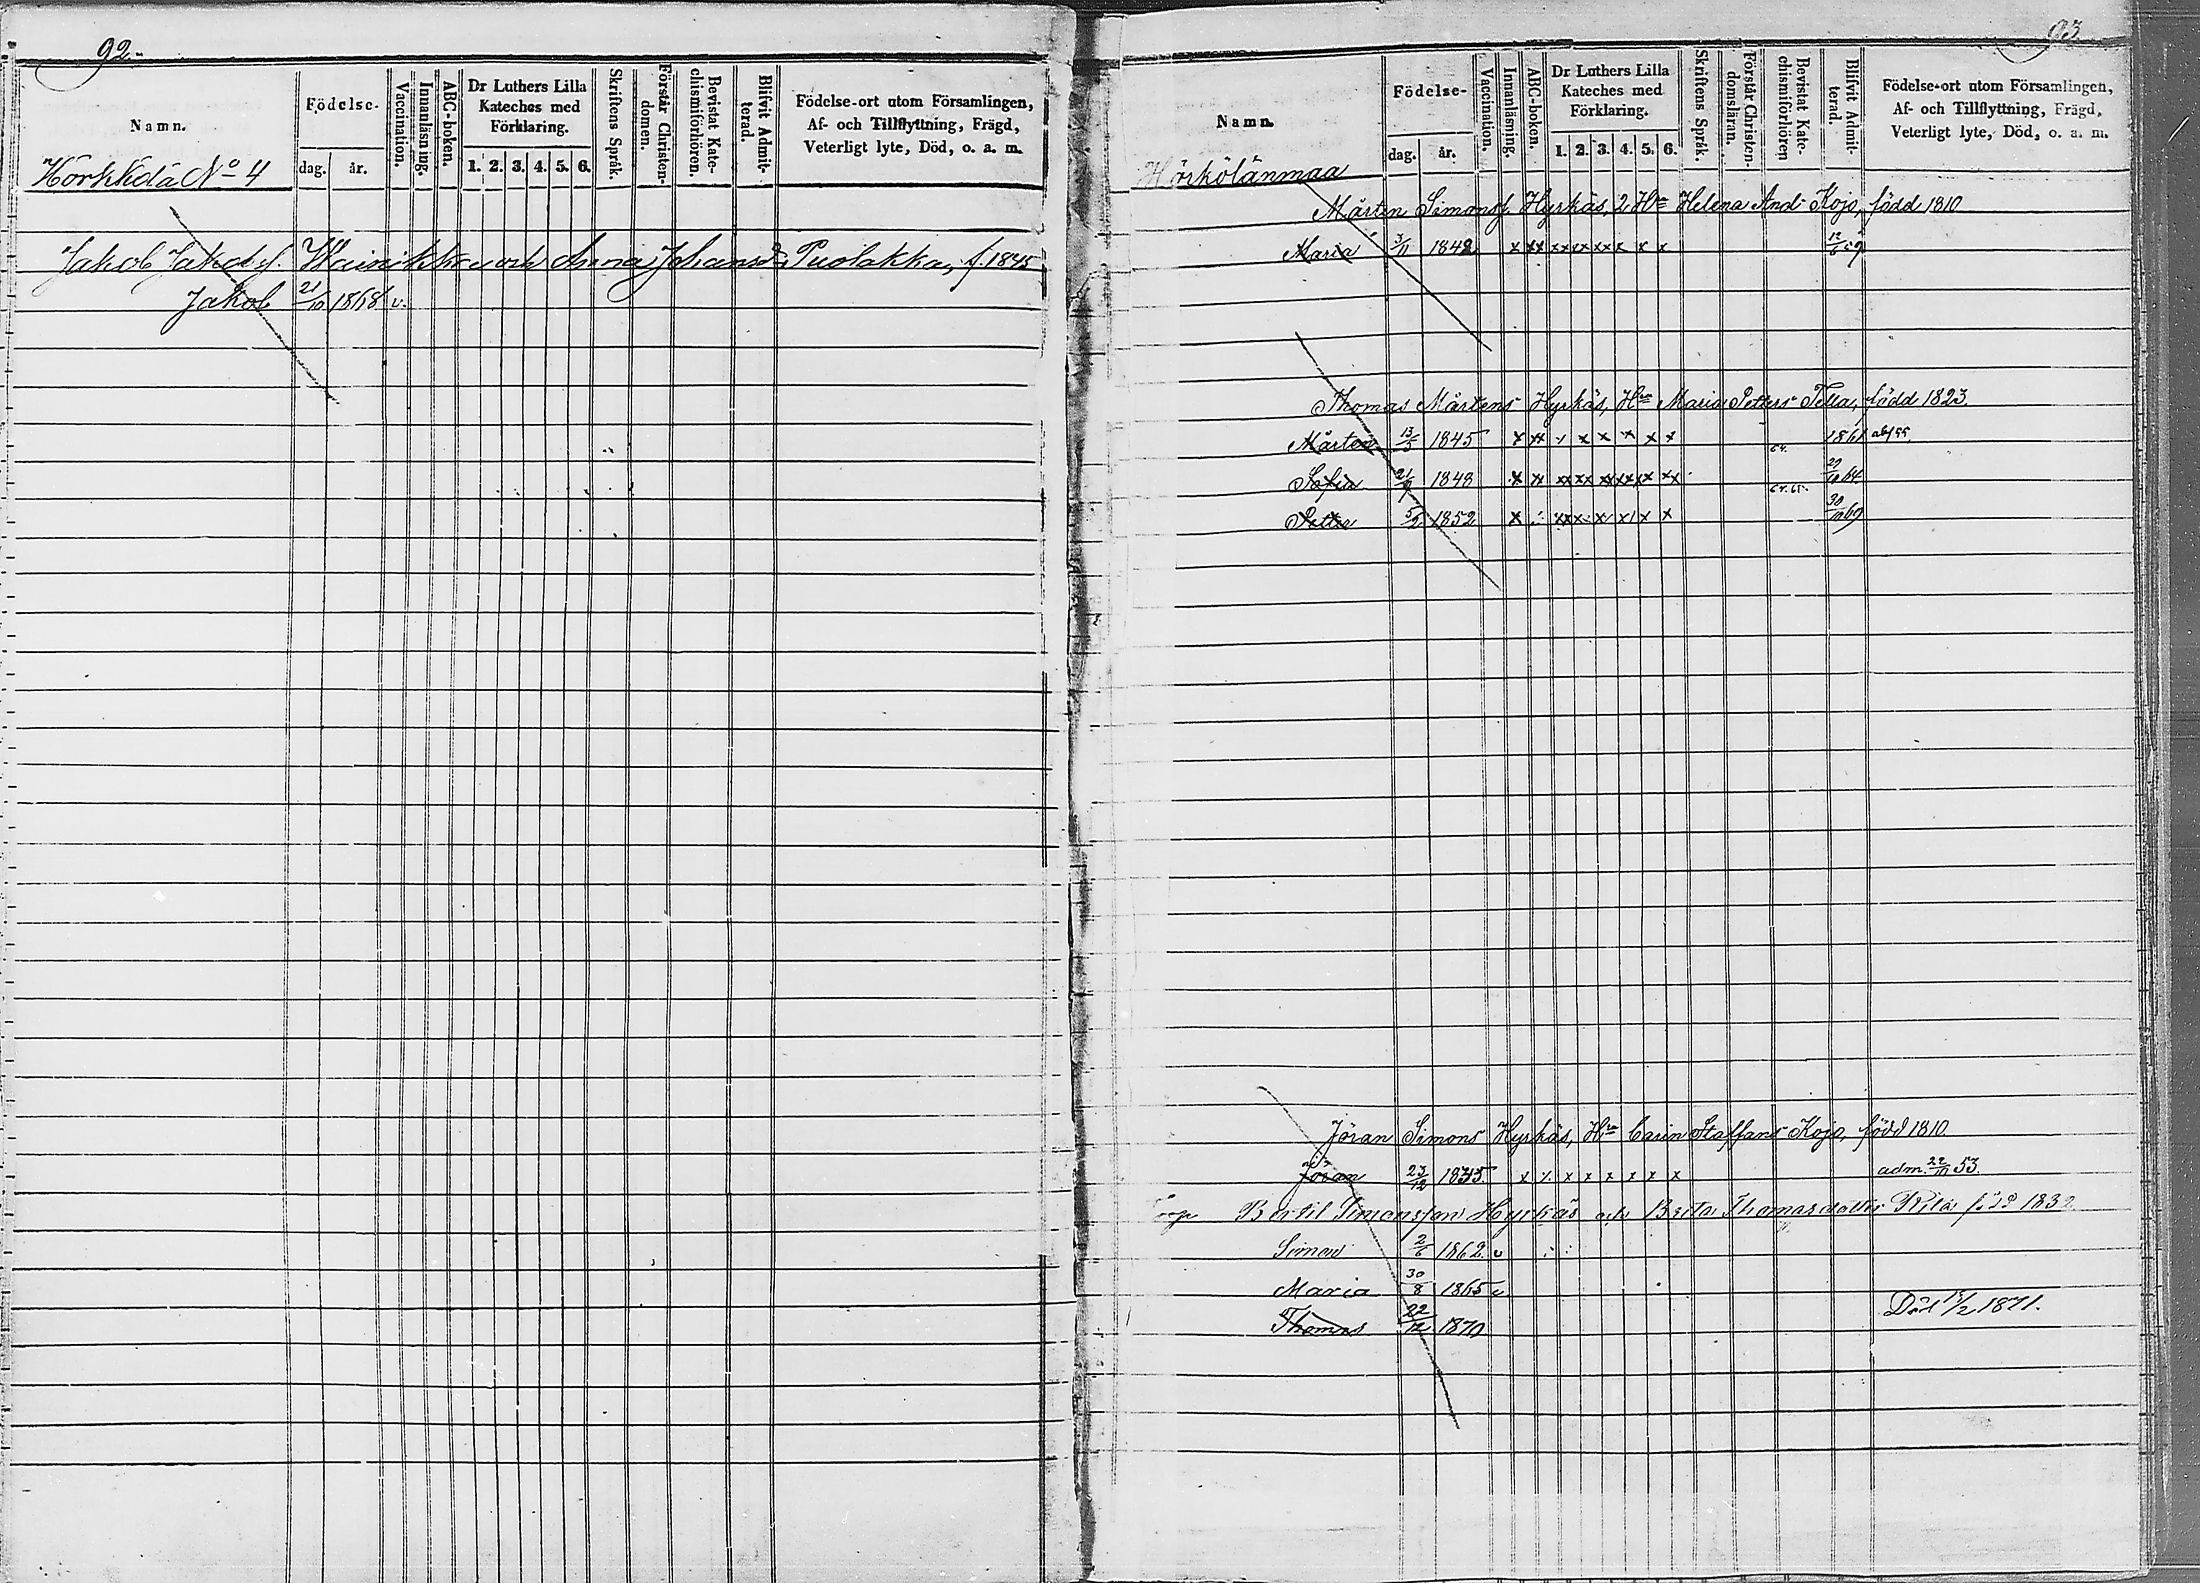 92.
Namn.
Födelse-
dag. år.
Vaccination.
Innanläsning.
ABC-boken.
Dr Luthers Lilla
Kateches med
Förklaring.
1. 2. 3. 4. 5. 6.
Skriftens Språk.
Förstår Christen-
domen.
Bevistat Kate-
chismiförhören.
Blifvit Admit-
terad.
Födelse-ort utom Församlingen,
Af- och Tillflyttning, Frägd,
Veterligt lyte, Död, o. a. m.
No 4
Jakob Jakobs. Wainikka och Anna Johansd. Puolakka, f. 1845
Jakob 21/10 1868 v.
93
Namn.
Födelse-
dag. år.
Vaccination.
Innanläsning.
ABC-boken.
Dr Luthers Lilla
Kateches med
Förklaring.
1. 2. 3. 4. 5. 6.
Skriftens Språk.
Förstår Christen-
domsläran.
Bevistat Kate-
chismiförhören
Blifvit Admit-
terad.
Födelse-ort utom Församlingen,
Af- och Tillflyttning, Frägd,
Veterligt lyte, Död, o. a. m.
Hörkölänmaa
Mårten Simons Hyrkäs, 2 Hru Helena And. Kojo, född 1810
Maria 3/11 1842 x xx xx xx xx x x x 12/6 59
Thomas Mårtens Hyrkäs, Hru Maria Petters Tella, född 1823.
Mårten 13/5 1845 x xx x x x x x x 1861
Sofia 1848 x xx xx xx xx xx xx 64
Petter 5/2 1852 x xx x x x x x 30/10 69
Jöran Simons Hyrkäs, Hru Carin Staffans Kojo, född 1810
Jöran 23/12 1835 x x x x x x x adm. 53.
Bertil Simonsson Hyrkäs och Brita Thomasdotter född 1832
Simon 2/6 1862 v
Maria 30/8 1865 v
Thomas 22/12 1870 Död 1871.